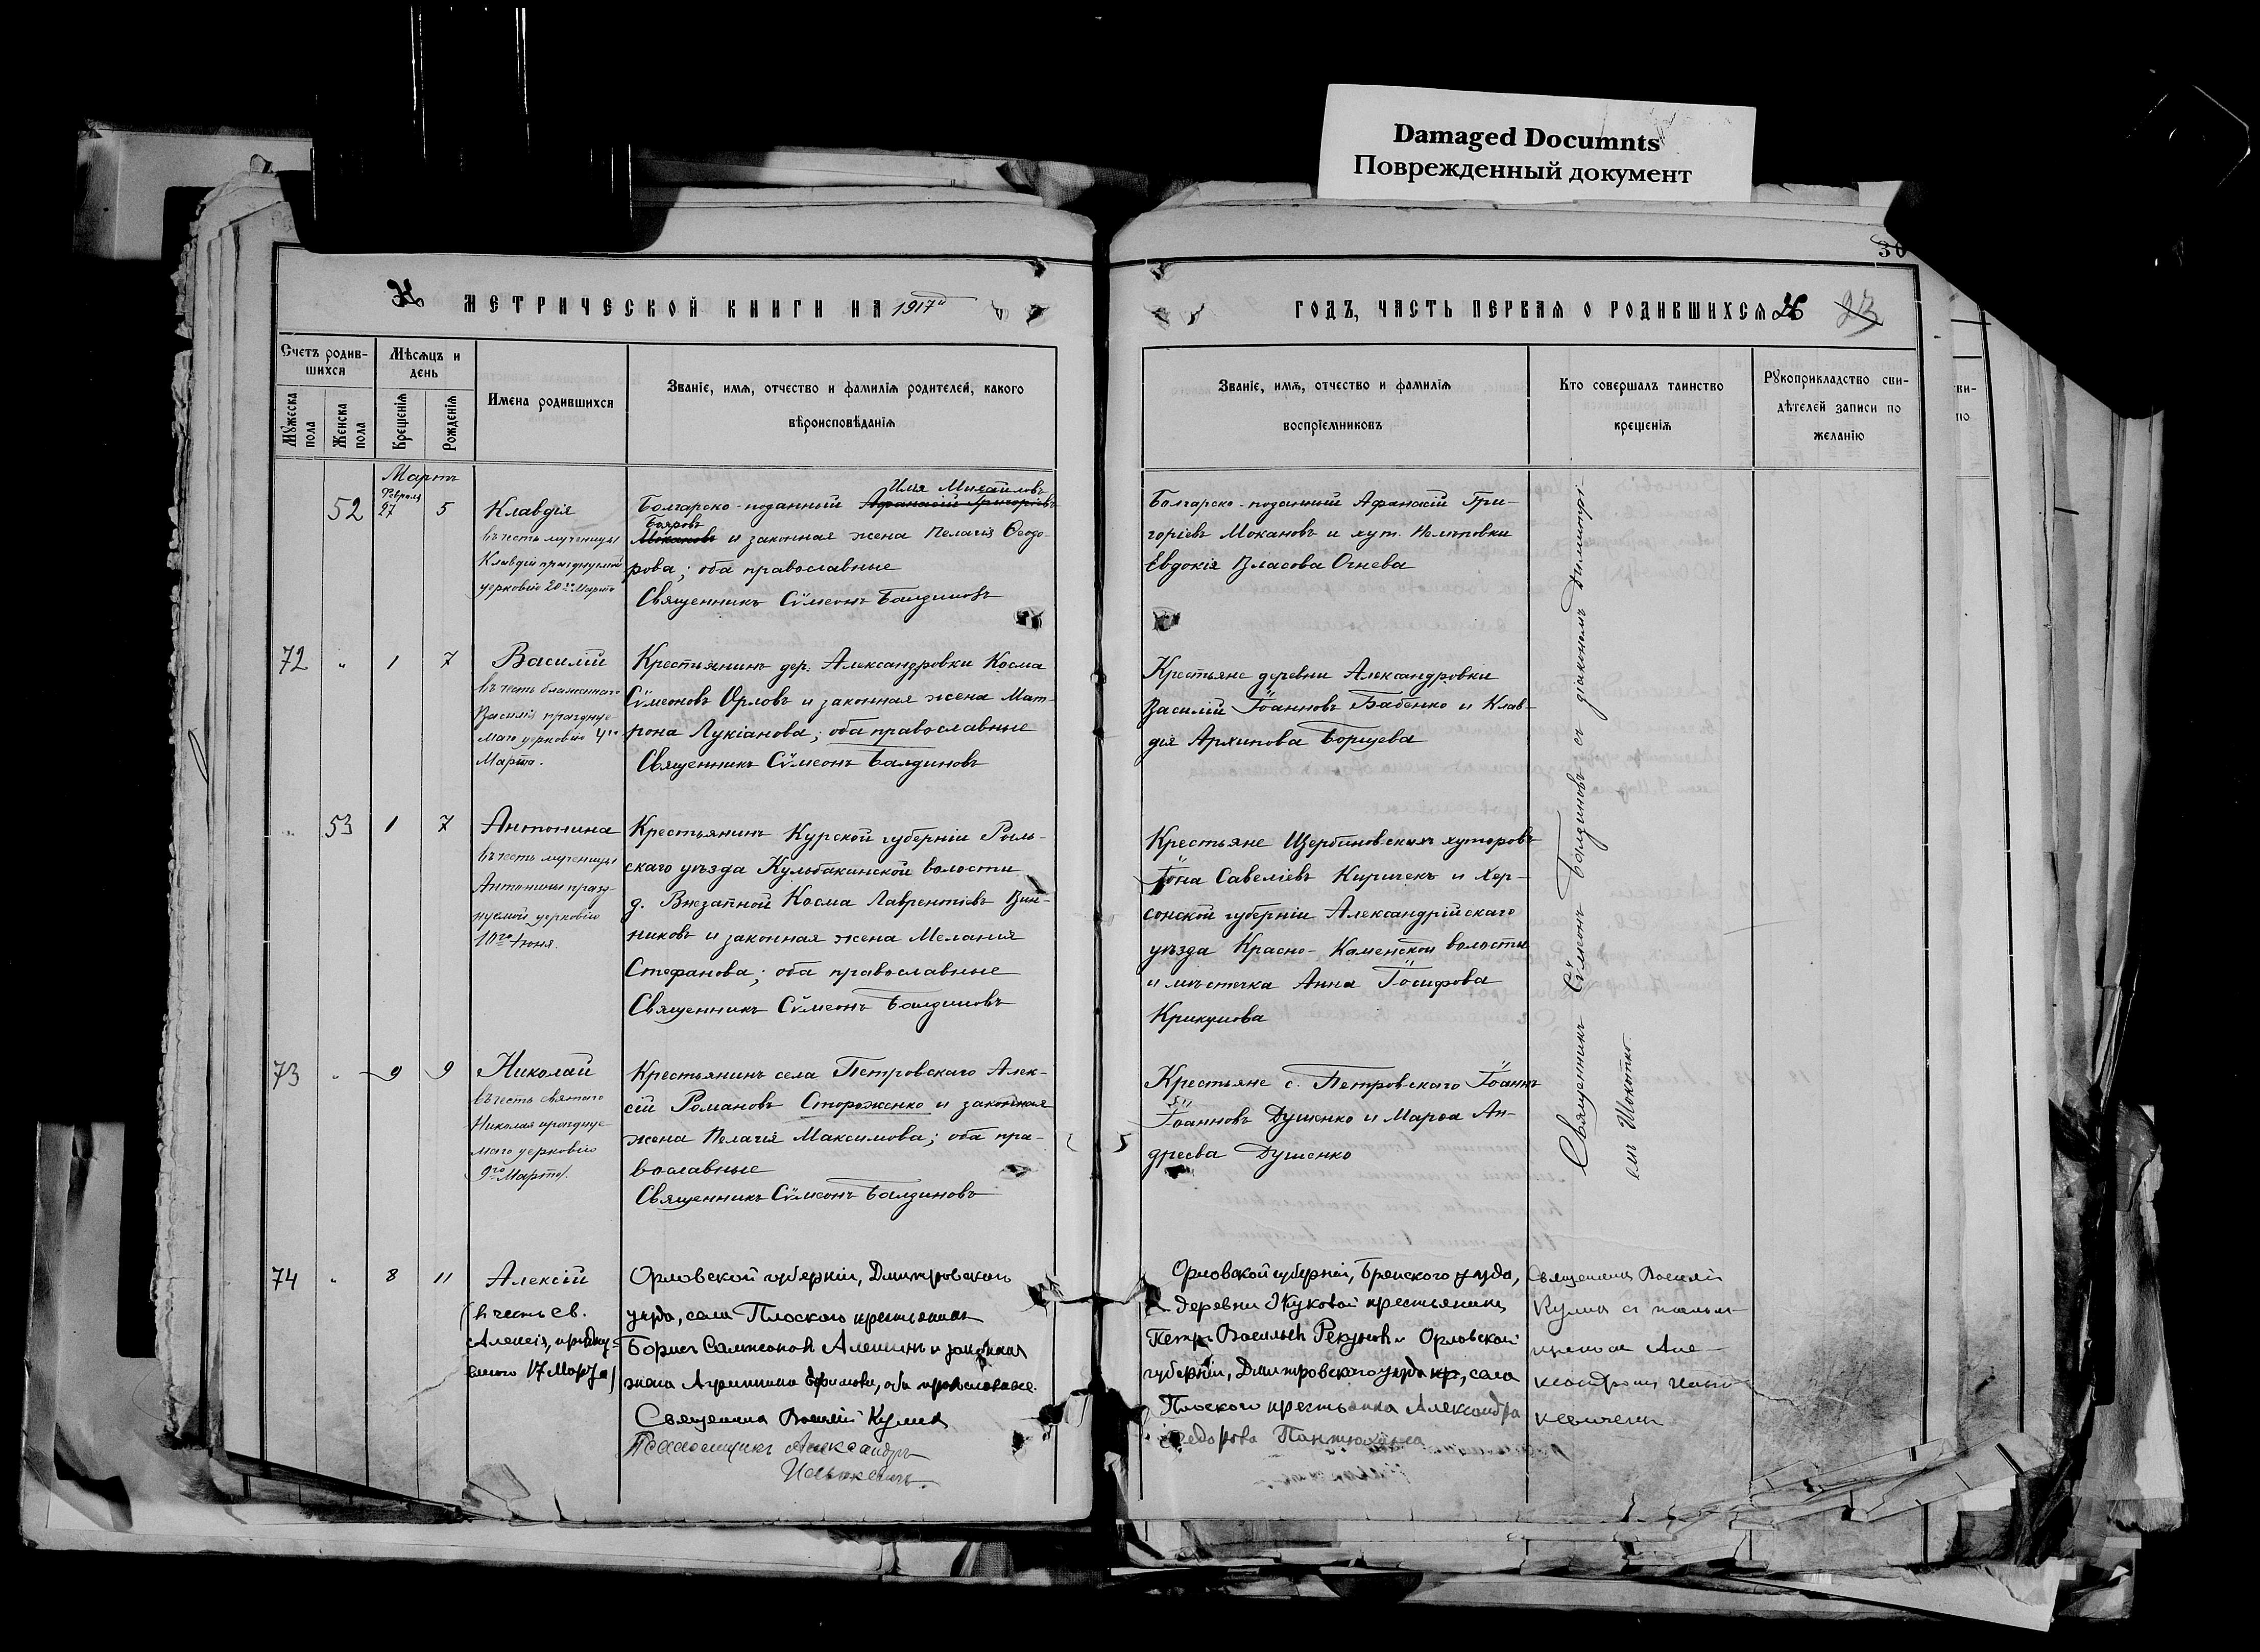 Damaged Documnts
Поврежденный документ
30
МЕТРИЧЕСКОЙ КНИГИ НА 1917й
ГОДЪ, ЧАСТЬ ПЕРВАЯ О РОДИВШИХСЯ 26 23
Счетъ родив-
шихся
Мужеска
пола
Женска
пола
Мѣсяцъ и
день
Крещенія
Рожденія
Имена родившихся
Званіе, имя, отчество и фамилія родителей, какого
вѣроисповѣданія
Званіе, имя, отчество и фамилія
воспріемниковъ
Кто совершалъ таинство
крещенія
Рукоприкладство сви-
дѣтелей записи по
желанію
Мартъ
52
Февраля
27
5
Клавдія
въ честь мученицы
Клавдіи празднуемой
церковію 20го Марта
Илія Михайловъ
Болгарско-поданный Афанасій Григоріевъ
Бояровъ
Мокановъ и законная жена Пелагія Ѳеодо-
рова; оба православные
Священникъ Сѷмеонъ Балдиновъ
Болгарско-поданный Афанасій Гри-
горіевъ Мокановъ и хут.
Евдокія Власова Огнева
72 „ 1 7
Василій
въ честь блаженнаго
Василія праздnуе-
маго церковію 4го
Марта.
Крестьянинъ дер. Александровки Косма
Сѷмеоновъ Орловъ и законная жена Мат-
рона Лукіанова; оба православные
Священникъ Сѷмеонъ Балдиновъ
Крестьяне деревни Александровки
Василій Іоанновъ Бабенко и Клав-
дія Архипова Борщева
„ 53 1 7
Антонина
въ честь мученицы
Антонины празд-
нуемой церковію
10го Іюня.
Крестьянинъ Курской губерніи Рыль-
скаго уѣзда Кульбакинской волости
д. Внезапной Косма Лаврентіевъ Вин-
никовъ и законная жена Меланія
Стефанова; оба православные
Священникъ Сѷмеонъ Балдиновъ
Крестьяне Щербиновскихъ хуторовъ
Іона Савеліевъ Киричекъ и Хер-
сонской губерніи Александрійскаго
уѣзда Красно-Каменской волости
и мѣстечка Анна Іосифова
Крикунова
73 „ 9 9
Николай
въ честь святаго
Николая празднуе-
маго церковію
9го Марта.
Крестьянинъ села Петровскаго Алек-
сій Романовъ Стороженко и законная
жена Пелагія Максимова; оба пра-
вославные
Священникъ Сѷмеонъ Балдиновъ
Крестьяне с. Петровскаго Іоаннъ
Іоанновъ Душенко и Марѳа Ан-
дреева Душенко
Священникъ Сѷмеонъ Балдиновъ съ діакономъ Димитрі-
емъ Шокотко.
74 „ 8 11
Алексій
(в честь св.
Алексія, праздну-
емого 17 Марта)
Орловской губерніи, Дмитровского
уезда, села Плоского крестьянин
Борис Сампсонов Алешин и законная
жена Агриппина Ефимова, оба православные.
Священник Василій Кулик
Псаломщикъ Александръ
Орловской губерніи, Брянского уезда,
деревни Жуковой крестьянин
Петр Васильев и Орловской
губерніи, Дмитровского уезда кр, села
Плоского крестьянка Александра
Федорова Пантюхина
Священник Василій
Кулик с псалом-
щиком Але-
ксандром